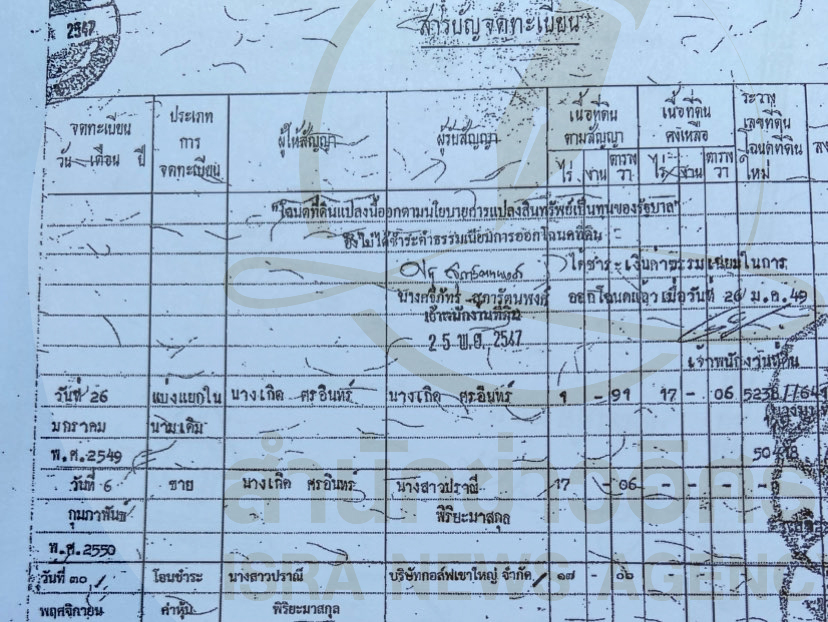 2547
สารบัญจดทะเบียน
จดทะเบียน
วัน เดือน ปี
ประเภท
การ
จดทะเบียน
ผู้ให้สัญญา
ผู้รับสัญญา
เนื้อที่ดิน
ตามสัญญา
ไร่ งาน ตาราง
วา
เนื้อที่ดิน
คงเหลือ
ไร่ งาน ตาราง
วา
ระวาง
เลขที่ดิน
โฉนดที่ดิน
ใหม่
"โฉนดที่ดินแปลงนี้ออกตามนโยบายการแปลงสินทรัพย์เป็นทุนของรัฐบาล"
ซึ่งไม่ได้ชำระค่าธรรมเนียมการออกโฉนดที่ดิน
ได้ชำระเงินค่าธรรมเนียมในการ
ออกโฉนดแล้ว เมื่อวันที่ 26 ม.ค.49
เจ้าพนักงานที่ดิน
2 5 พ.ย. 2547
เจ้าพนักงานที่ดิน
วันที่ 26 แบ่งแยกใน นางเกิด ศรอินทร์ นางเกิด ศรอินทร์ 1 - 91 17 - 06
มกราคม นามเดิม
พ.ศ.2549
วันที่ 6 ขาย นางเกิด ศรอินทร์ นางสาวปราณี 17 - 06 - - -
กุมภาพันธ์ พิริยะมาสกุล
พ.ศ.2550
วันที่ ๓๐ โอนชำระ นางสาวปราณี บริษัทกอล์ฟเขาใหญ่ จำกัด ๑๗ - ๐๖
พฤศจิกายน ค่าหุ้น พิริยะมาสกุล
สำนักข่าวอิศรา
ISRA NEWS AGENC